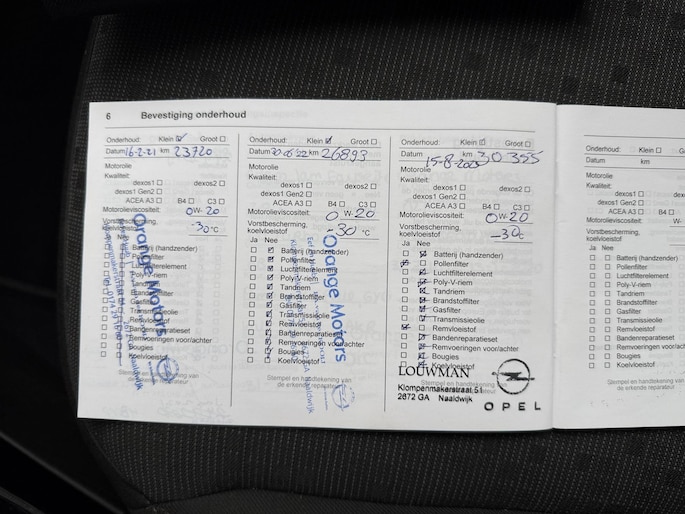 6 Bevestiging onderhoud
Onderhoud: Klein ☑ Groot ☐
Datum 16-2-21 km 23720
Motorolie
Kwaliteit:
dexos1 ☐ dexos2 ☐
dexos1 Gen2 ☐
ACEA A3 ☐ B4 ☐ C3 ☐
Motorolieviscositeit: 0W-20
Vorstbescherming,
koelvloeistof -30°C
Ja Nee
Batterij (handzender)
Pollenfilter
Luchtfilterelement
Poly-V-riem
Tandriem
Brandstoffilter
Gasfilter
Transmissieolie
Remvloeistof
Bandenreparatieset
Remvoeringen voor/achter
Bougies
Koelvloeistof
Stempel en handtekening van
de erkende reparateur
Orange Motors
Naaldwijk
Onderhoud: Klein ☑ Groot ☐
Datum km 26893
Motorolie
Kwaliteit:
dexos1 ☐ dexos2 ☐
dexos1 Gen2 ☐
ACEA A3 ☐ B4 ☐ C3 ☐
Motorolieviscositeit: 0W-20
Vorstbescherming,
koelvloeistof -30 °C
Ja Nee
Batterij (handzender)
Pollenfilter
Luchtfilterelement
Poly-V-riem
Tandriem
Brandstoffilter
Gasfilter
Transmissieolie
Remvloeistof
Bandenreparatieset
Remvoeringen voor/achter
Bougies
Koelvloeistof
Stempel en handtekening van
de erkende reparateur
Orange Motors
Naaldwijk
Onderhoud: Klein ☑ Groot ☐
Datum 15-8- km 30355
Motorolie
Kwaliteit:
dexos1 ☐ dexos2 ☐
dexos1 Gen2 ☐
ACEA A3 ☐ B4 ☐ C3 ☐
Motorolieviscositeit: 0W-20
Vorstbescherming,
koelvloeistof -30°C
Ja Nee
Batterij (handzender)
Pollenfilter
Luchtfilterelement
Poly-V-riem
Tandriem
Brandstoffilter
Gasfilter
Transmissieolie
Remvloeistof
Bandenreparatieset
Remvoeringen voor/achter
Bougies
Koelvloeistof
Stempel en handtekening van
de erkende reparateur
LOUWMAN
Klompenmakerstraat 51
2672 GA Naaldwijk
OPEL
Onderhoud: Klein ☐ Groot ☐
Datum km
Motorolie
Kwaliteit:
dexos1 ☐ dexos2 ☐
dexos1 Gen2 ☐
ACEA A3 ☐ B4 ☐ C3 ☐
Motorolieviscositeit: W-
Vorstbescherming,
koelvloeistof
Ja Nee
Batterij (handzender)
Pollenfilter
Luchtfilterelement
Poly-V-riem
Tandriem
Brandstoffilter
Gasfilter
Transmissieolie
Remvloeistof
Bandenreparatieset
Remvoeringen voor/achter
Bougies
Koelvloeistof
Stempel en handtekening van
de erkende reparateur